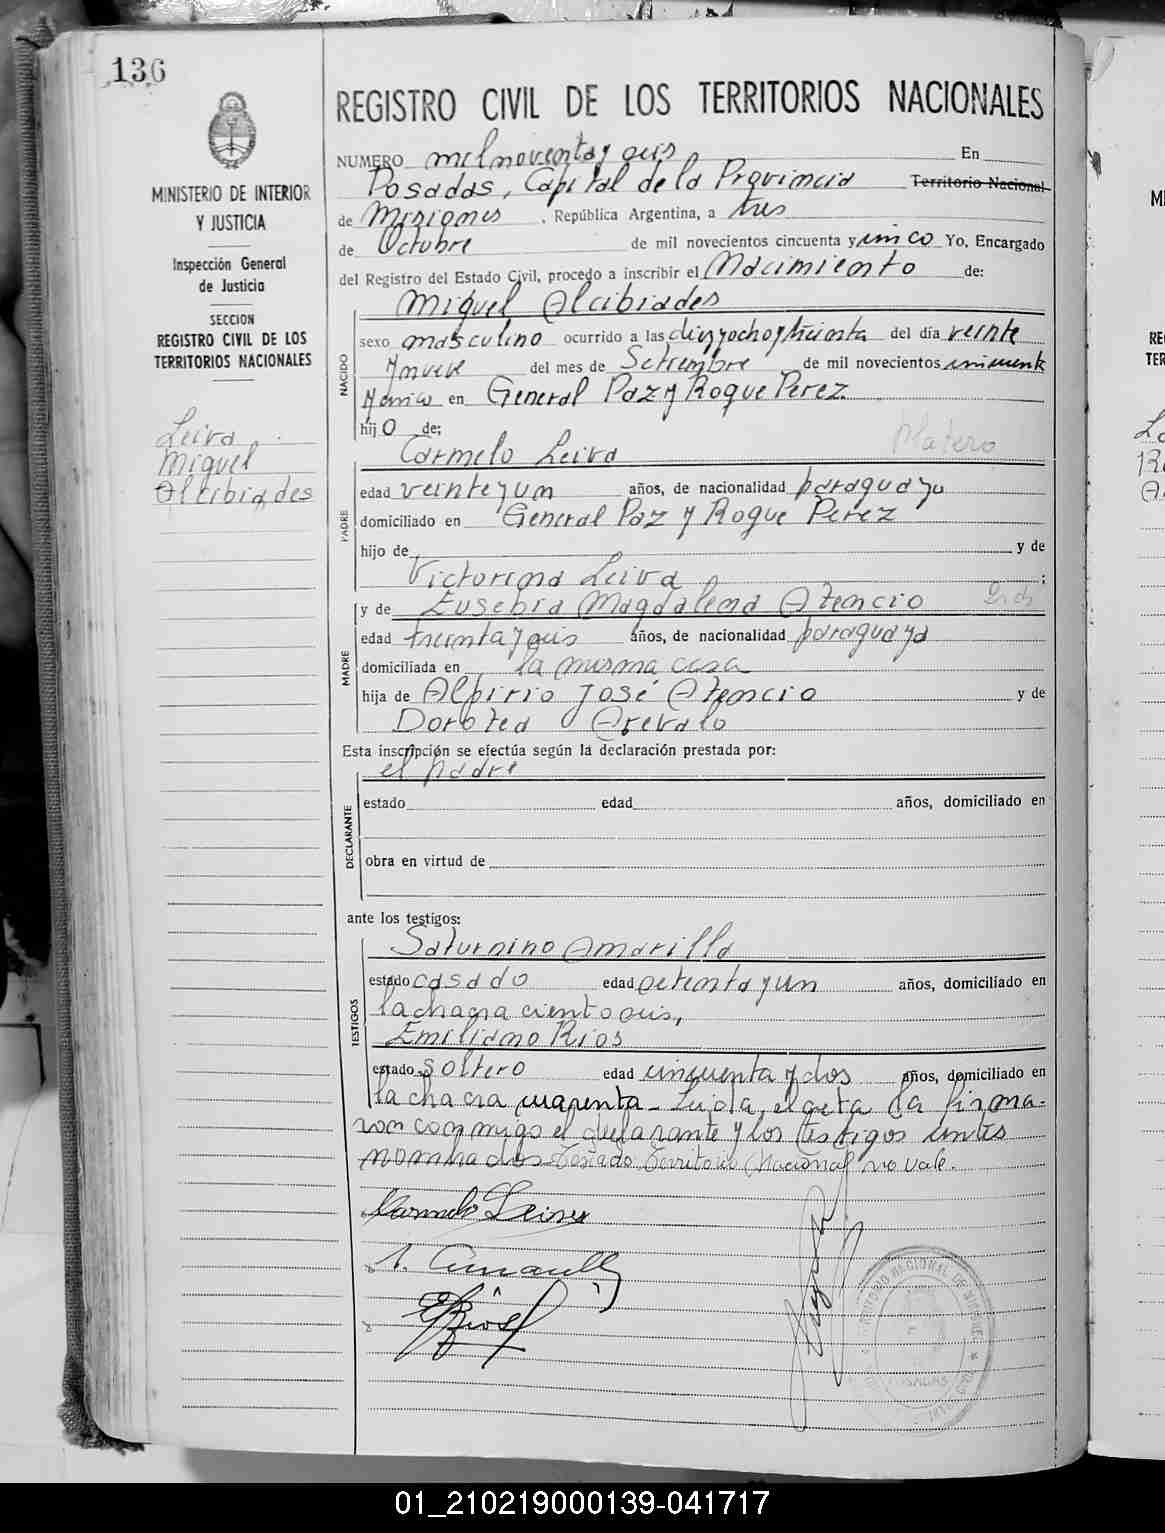 136
MINISTERIO DE INTERIOR
Y JUSTICIA
Inspección General
de Justicia
SECCION
REGISTRO CIVIL DE LOS
TERRITORIOS NACIONALES
Leiva
Miguel
Alcibiades
REGISTRO CIVIL DE LOS TERRITORIOS NACIONALES
NUMERO mil noventa y seis En
Posadas, Capital de la Provincia Territorio Nacional
de Misiones, República Argentina, a tres
de Octubre de mil novecientos cincuenta y cinco Yo, Encargado
del Registro del Estado Civil, procedo a inscribir el Nacimiento de:
Miguel Alcibiades
NACIDO
sexo masculino ocurrido a las diez y ocho y treinta del día veinte
y nueve del mes de Setiembre de mil novecientos cincuenta
y cinco en General Paz y Roque Perez
hijo de:
Carmelo Leiva
PADRE
edad veinte y un años, de nacionalidad paraguayo
domiciliado en General Paz y Roque Perez
hijo de y de
Victorina Leiva ;
y de Eusebia Magdalena Atencio
MADRE
edad treinta y seis años, de nacionalidad paraguaya
domiciliada en la misma casa
hija de Alpirio José Atencio y de
Dorotea Arevalo
Esta inscripción se efectúa según la declaración prestada por:
el padre
DECLARANTE
estado edad años, domiciliado en
obra en virtud de
ante los testigos:
Saturnino Amarilla
TESTIGOS
estado casado edad setenta y un años, domiciliado en
la chacra ciento seis,
Emiliano Rios
estado soltero edad cincuenta y dos años, domiciliado en
la chacra cuarenta - Leida, el acta la firma-
ron conmigo el declarante y los testigos antes
nominados Testado Territorio Nacional no vale.
Carmelo Leiva
S. Amarilla
E. Rios
01_210219000139-041717